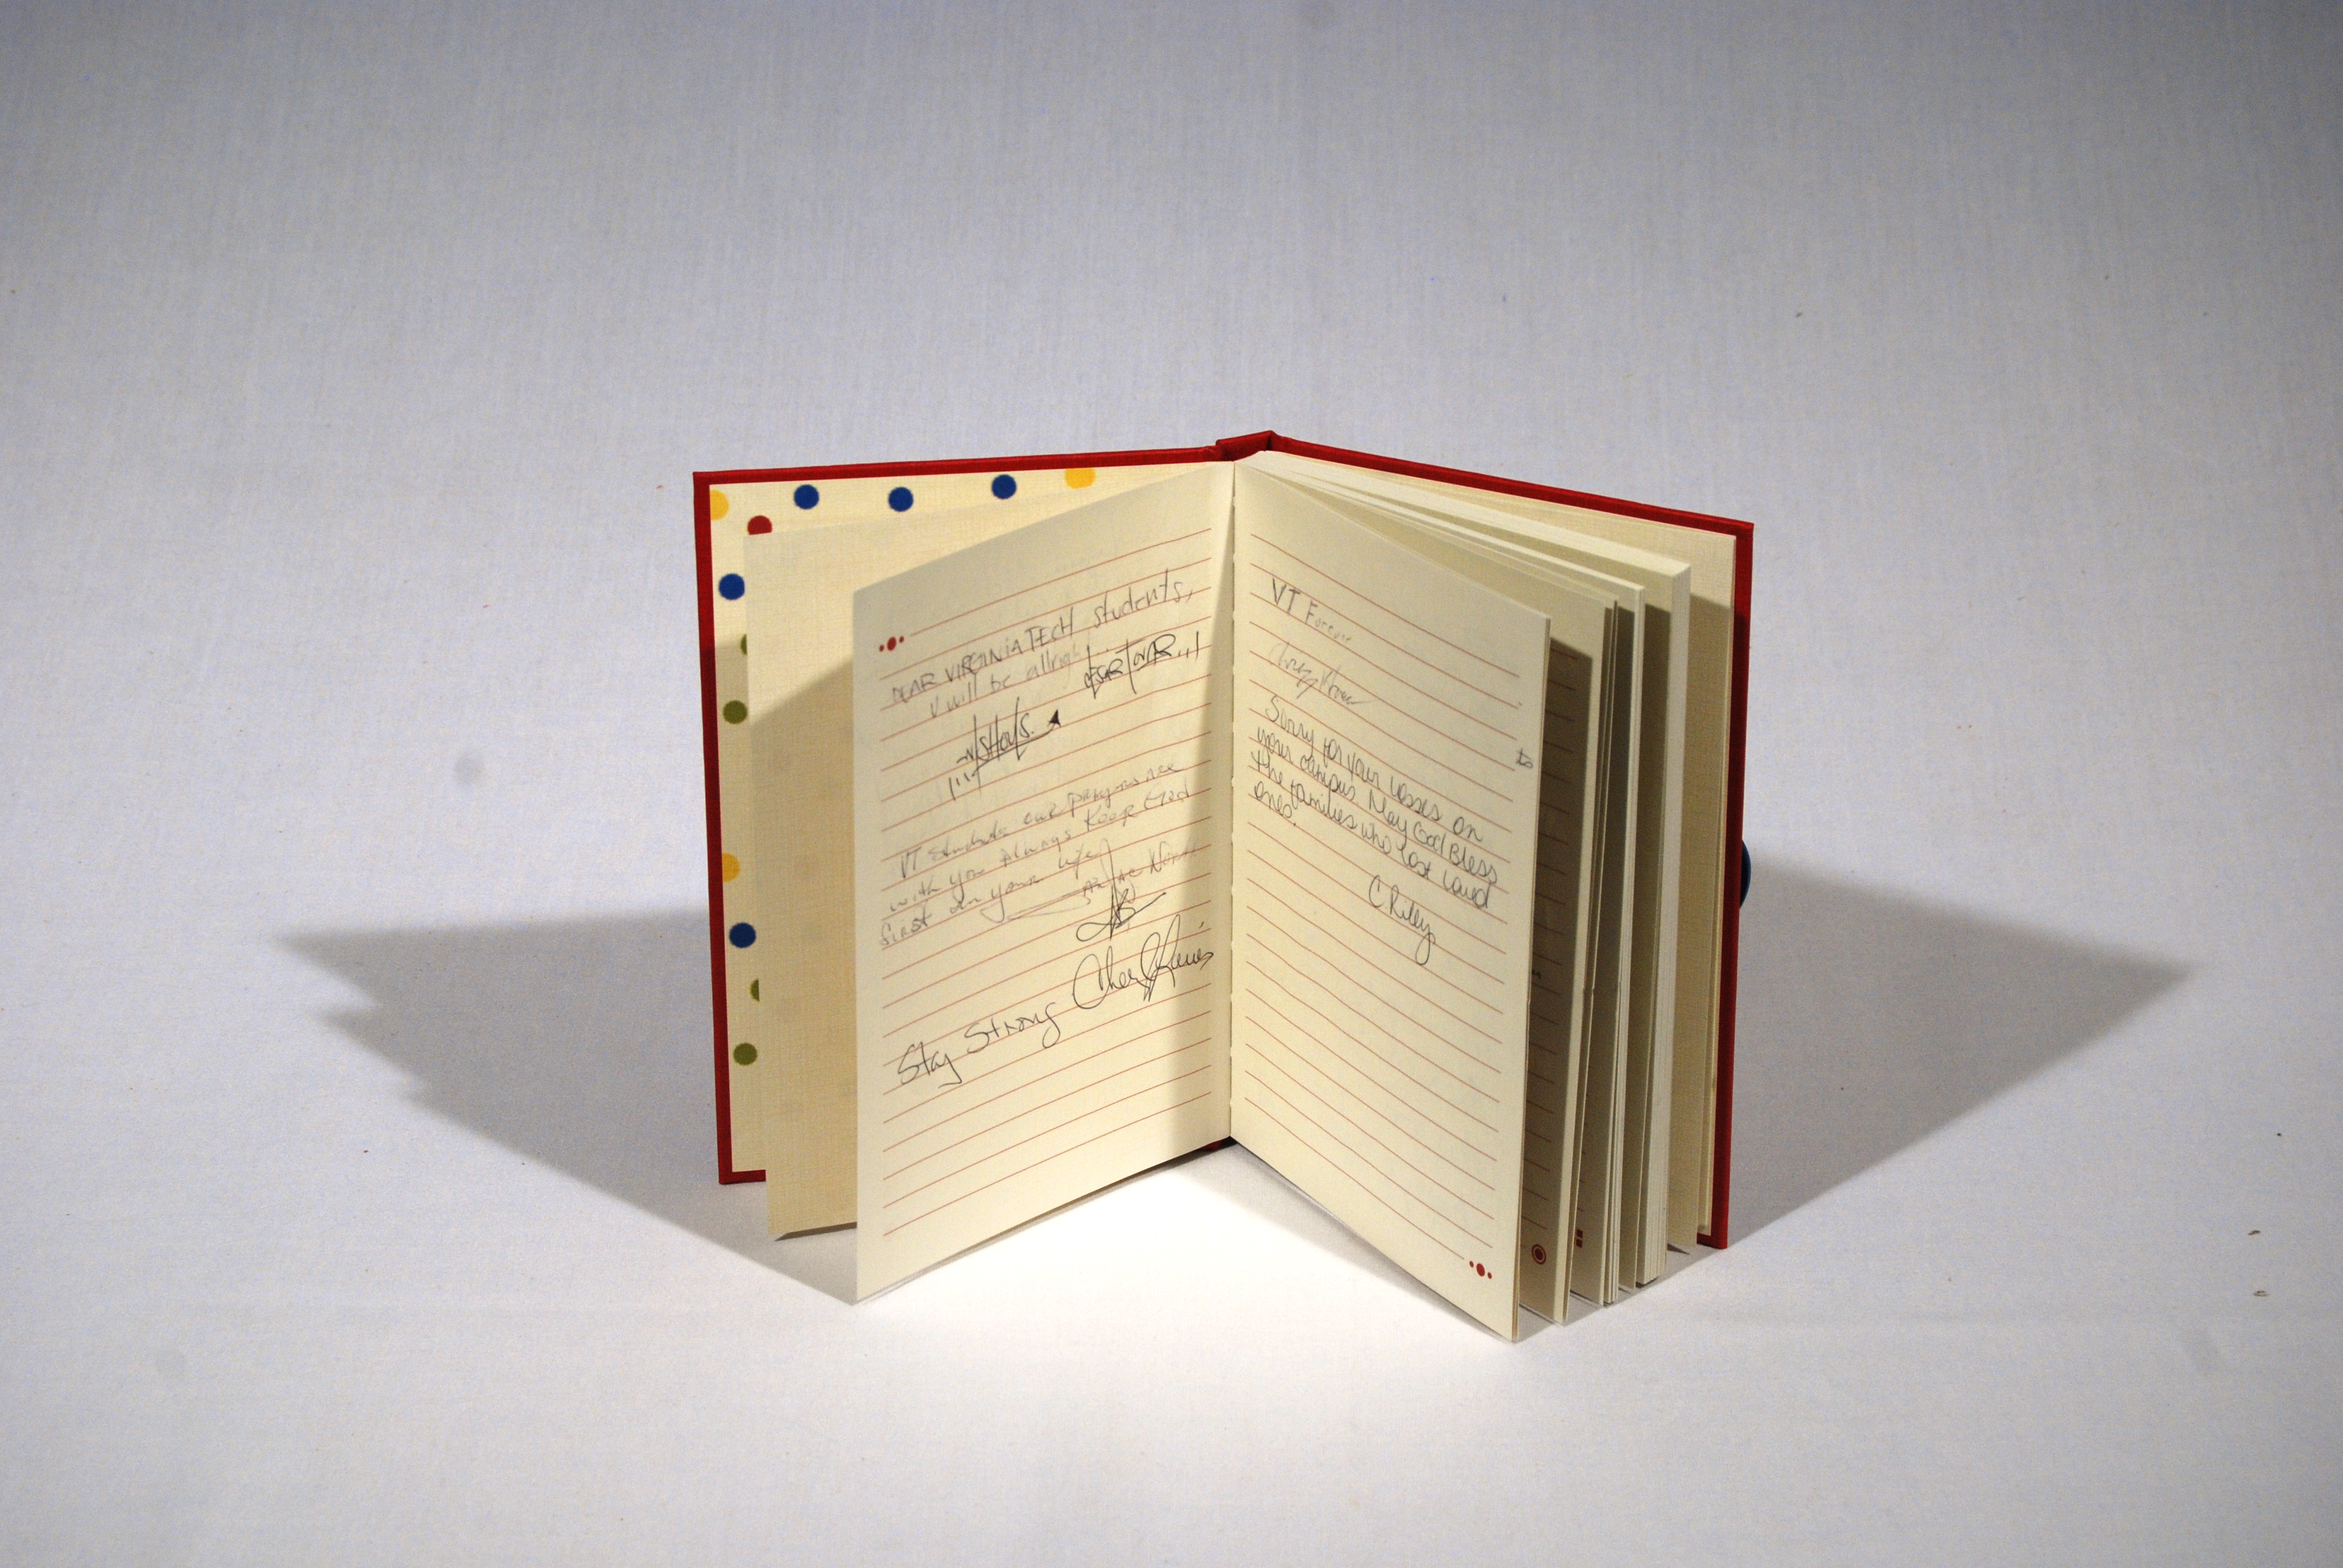 DEAR VIRGINIA TECH students,
U will be allright...
VT Students our prayers are
with you Always Keep God
first in your life
Stay Strong
VT Forever
Sorry for your losses on
your campus May God Bless
the families who lost loved
ones.
C Riley
to